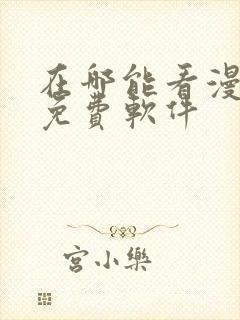 在哪能看漫
免費軟件
宮小樂